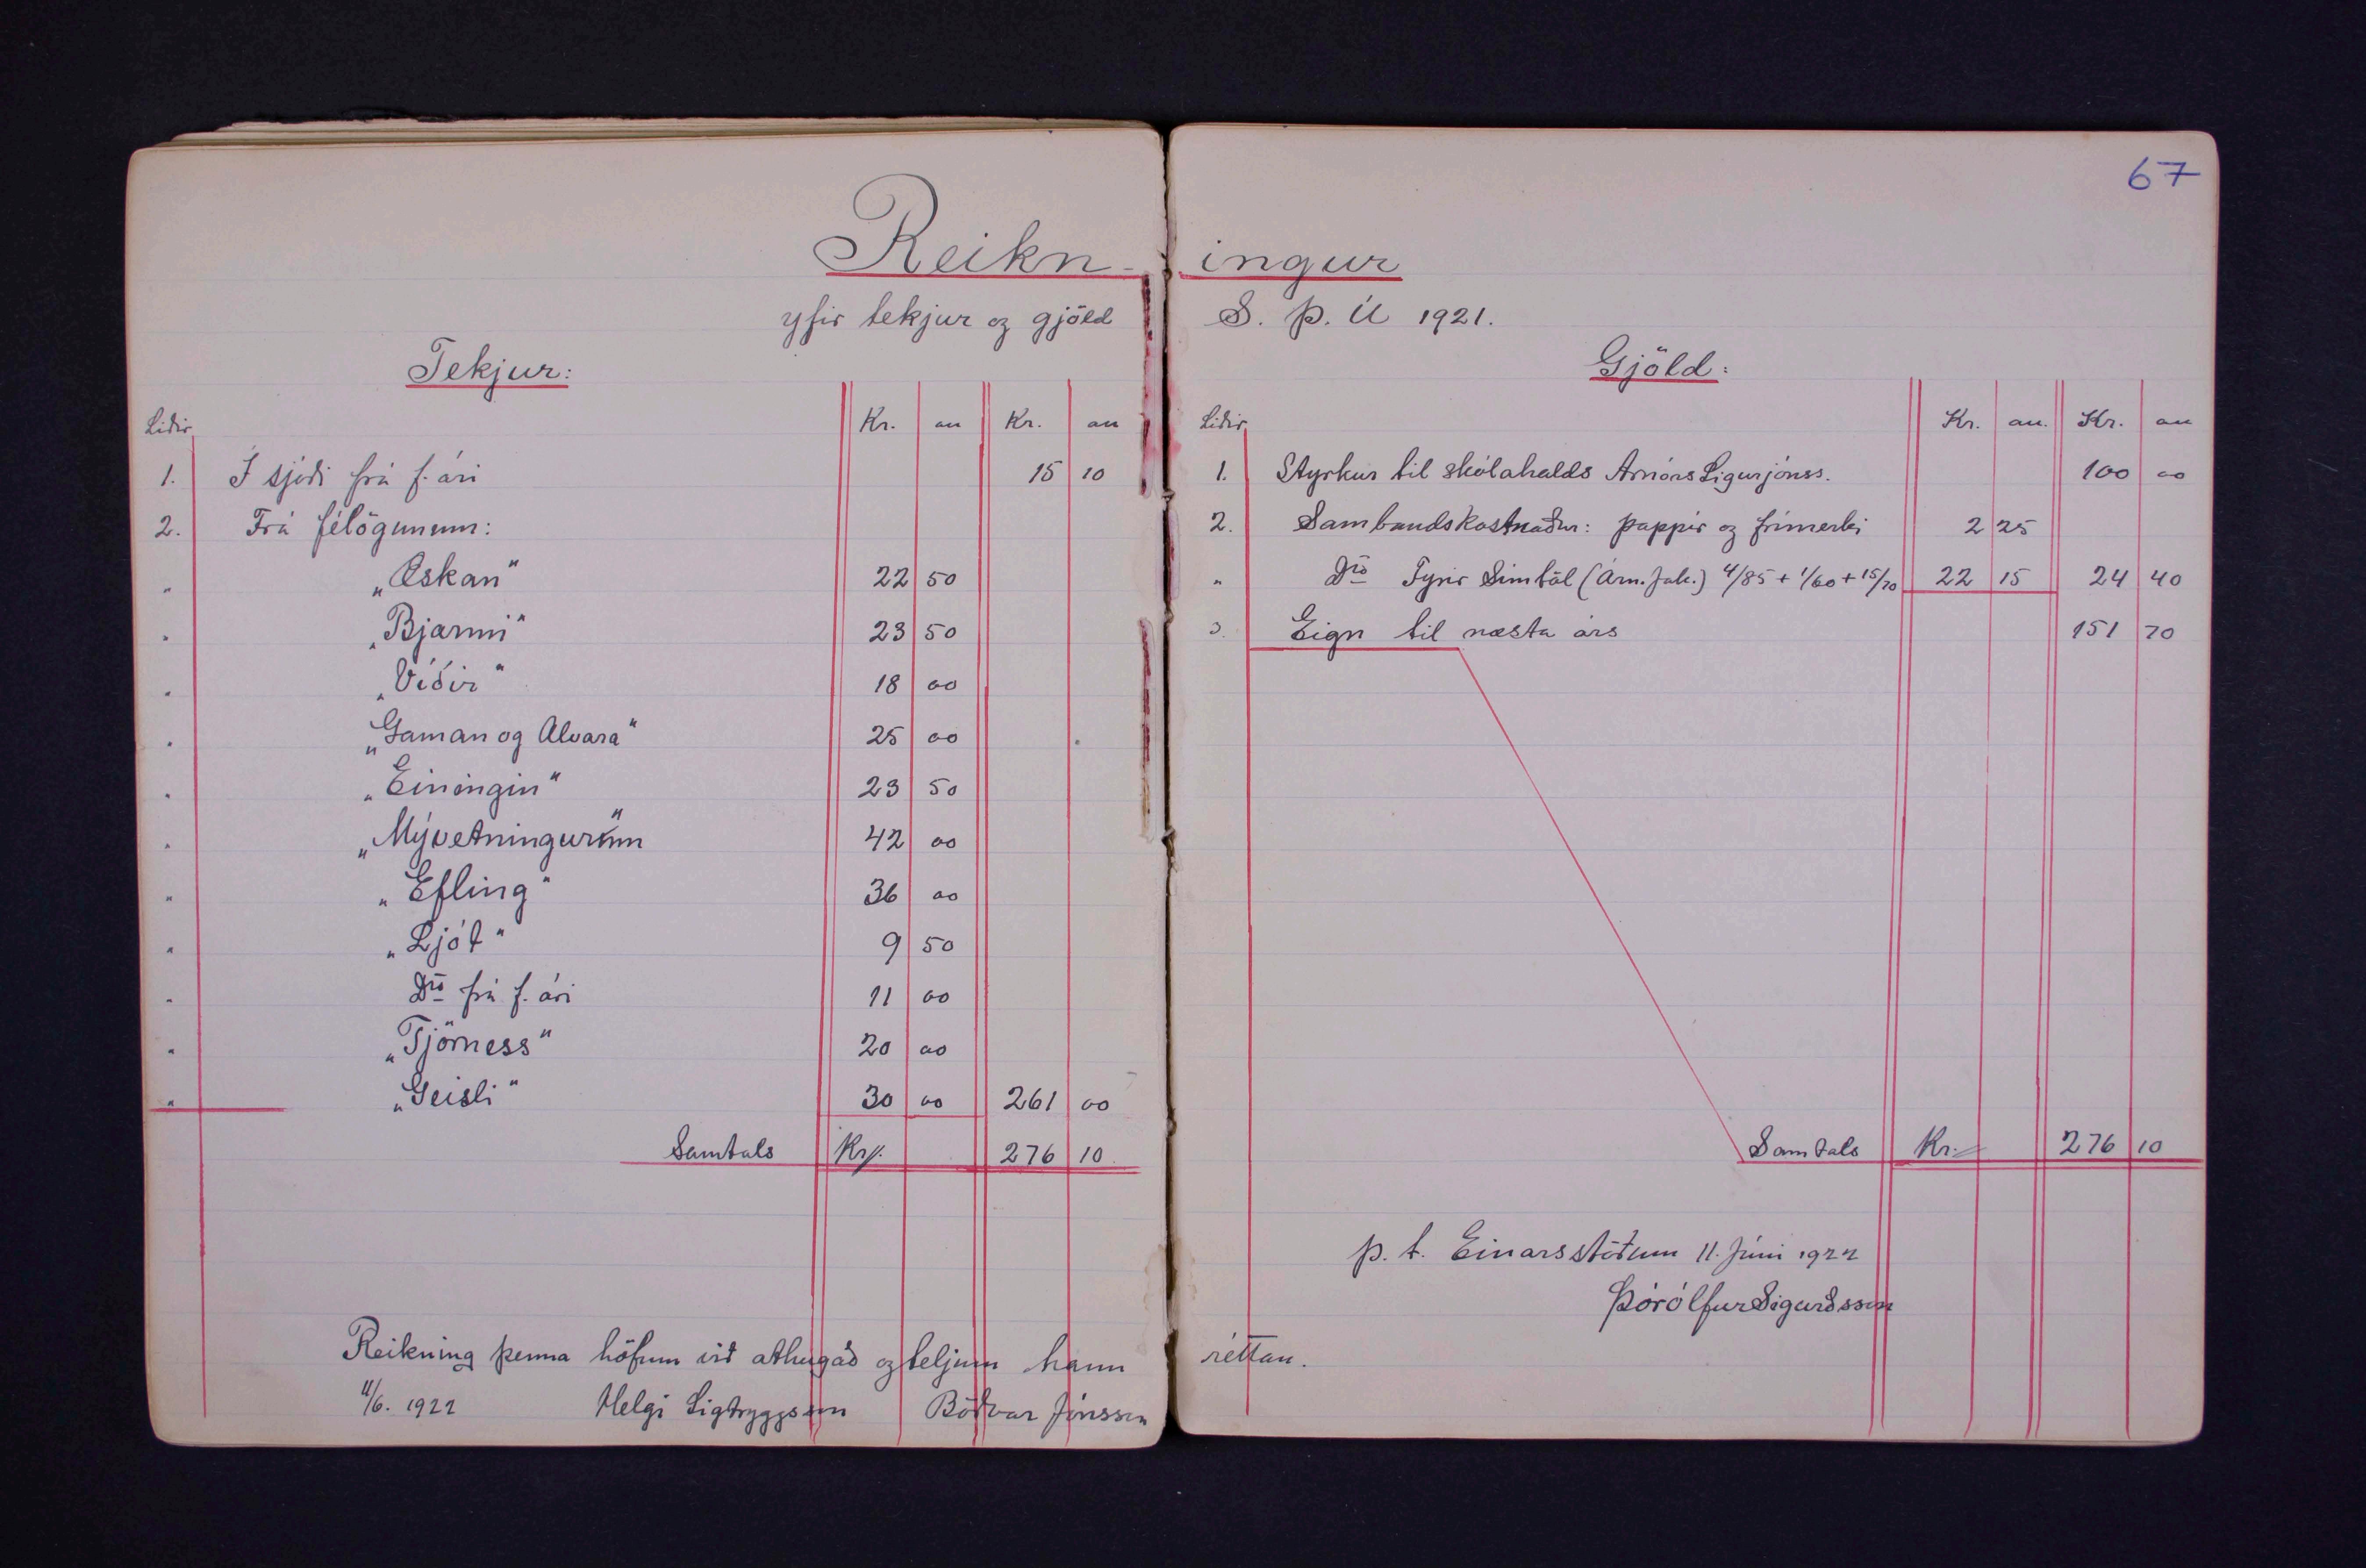 67
Reikn-ingur
yfir tekjur og gjöld S. Þ. U 1921.
Tekjur:
Liðir Kr. au Kr. au
1. Í sjóði frá f. ári 15 10
2. Frá félögunum:
" „Æskan" 22 50
" „Bjarmi" 23 50
" „Víðir" 18 00
" „Gaman og Alvara" 25 00
" „Einingin" 23 50
" „Mývetningurinn" 42 00
" „Efling" 36 00
" „Ljót" 9 50
" Do frá f. ári 11 00
" „Tjörness" 20 00
" „Geisli" 30 00 261 00
Samtals Kr. 276 10
Reikning þenna höfum við athugað og teljum hann réttan.
11/6. 1922 Helgi Sigtryggsson Böðvar Jónsson
Gjöld:
Liðir Kr. au. Kr. au
1. Styrkur til skólahalds Arnórs Sigurjónss. 100 00
2. Sambandskostnaður: pappír og frímerki 2 25
" Do Fyrir Símtöl (Árn. Jak.) 4/85 + 1/60 + 15/70 22 15 24 40
3. Eign til næsta árs 151 70
Samtals Kr. 276 10
p. t. Einarsstöðum 11. Júní 1922
Þórólfur Sigurðsson